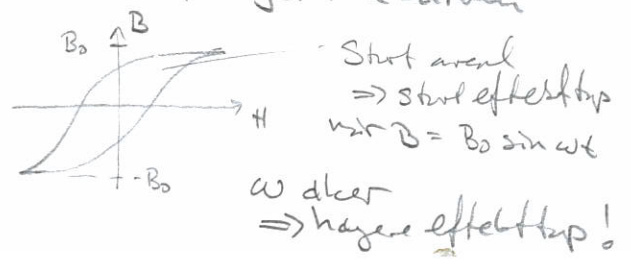 B
B₀
H
-B₀
Stort areal
⇒ stort effekttap
når B = B₀ sin ωt
ω øker
⇒ høyere effekttap!